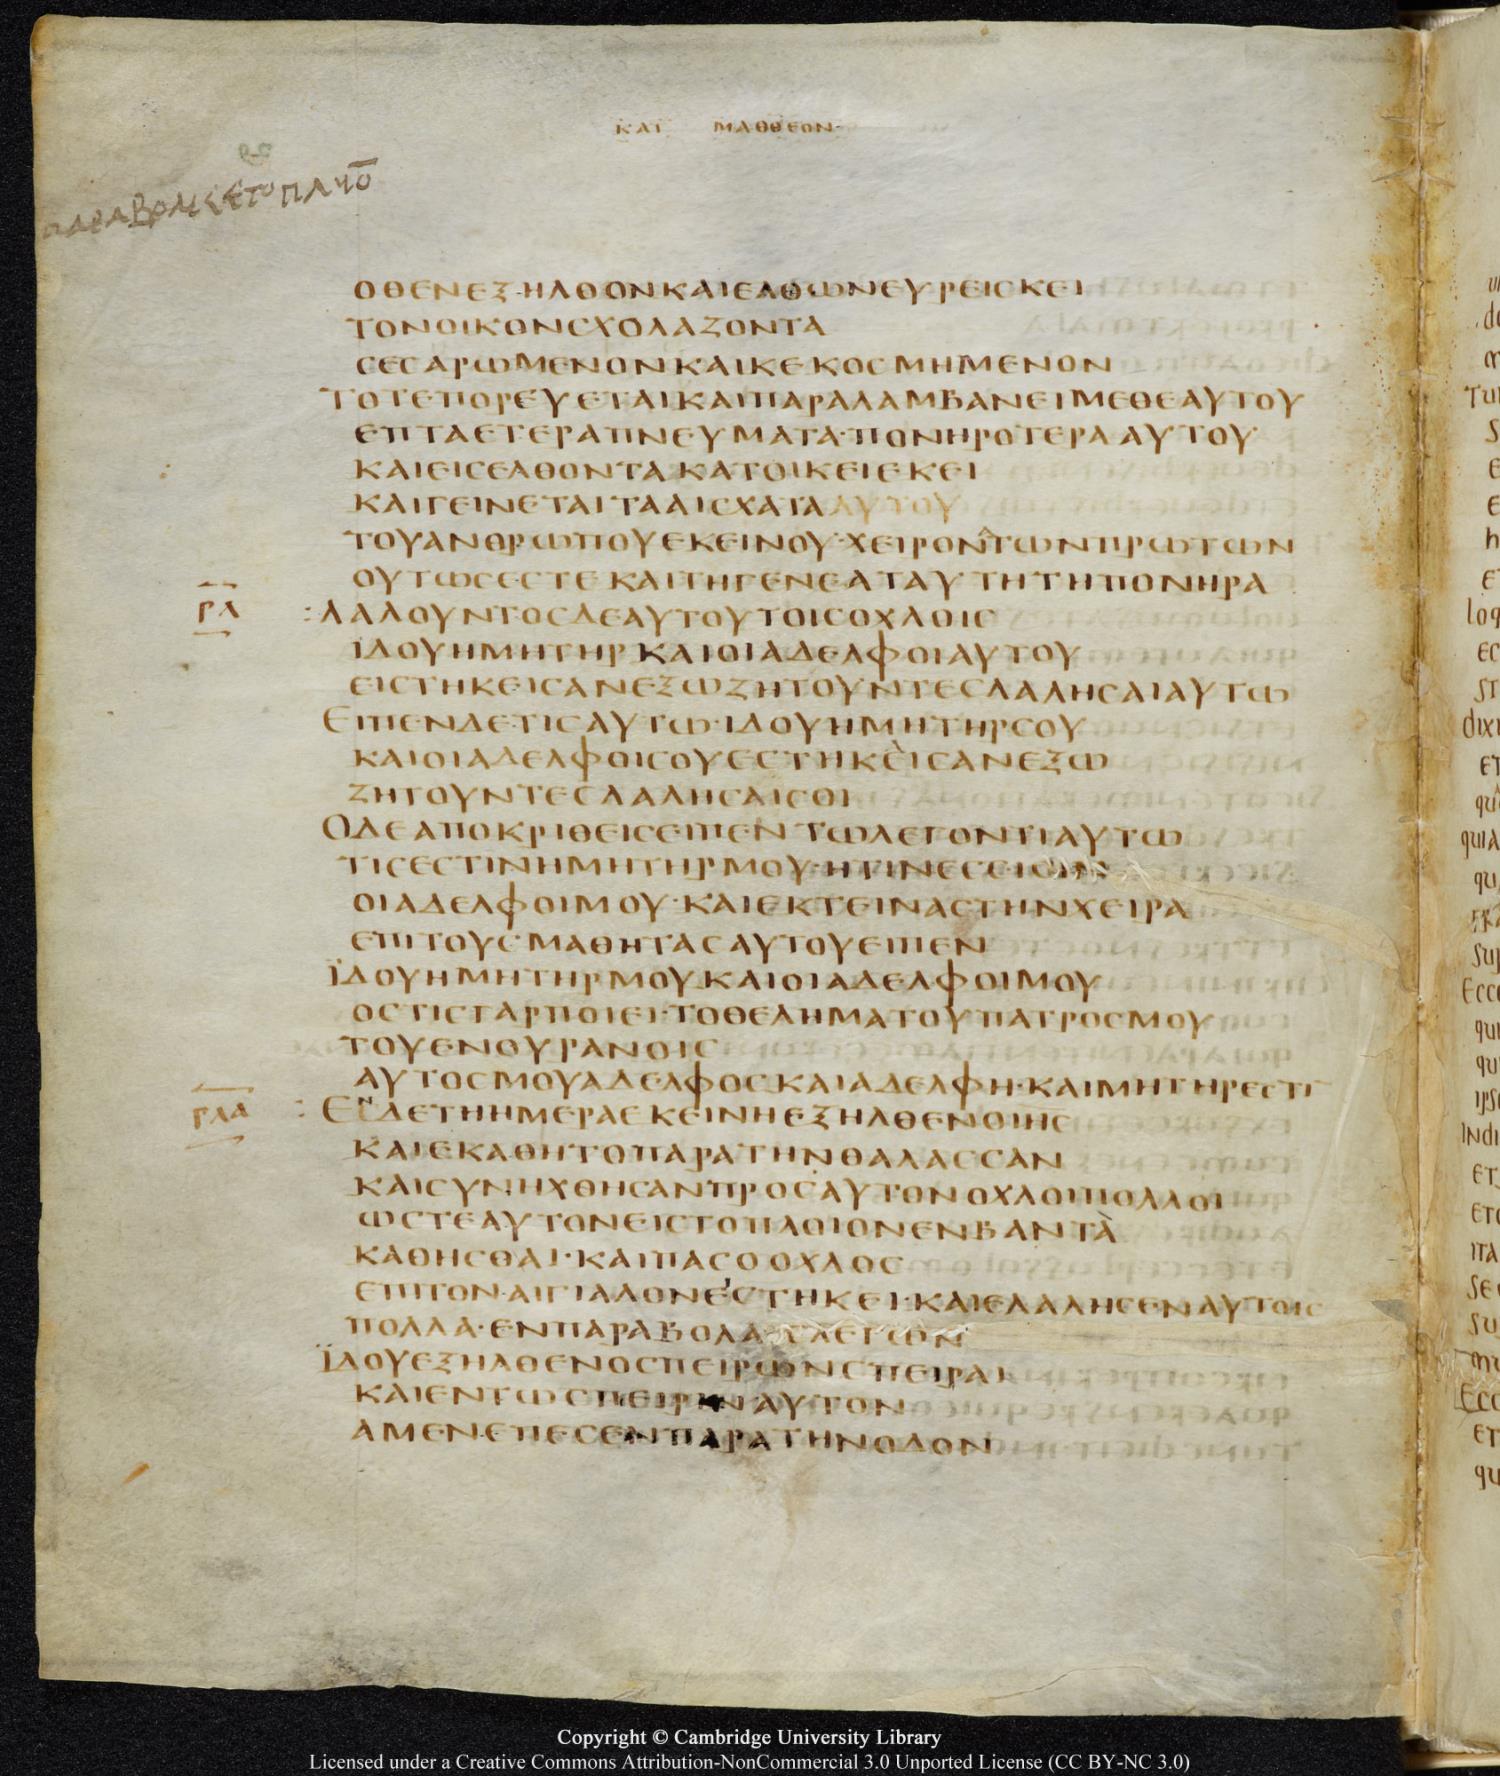 ΚΑΤ ΜΑΘΘΕΟΝ
ΟΘΕΝΕΞΗΛΘΟΝΚΑΙΕΛΘΩΝΕΥΡΕΙϹΚΕΙ
ΤΟΝΟΙΚΟΝϹΧΟΛΑΖΟΝΤΑ
ϹΕϹΑΡΩΜΕΝΟΝΚΑΙΚΕΚΟϹΜΗΜΕΝΟΝ
ΤΟΤΕΠΟΡΕΥΕΤΑΙΚΑΙΠΑΡΑΛΑΜΒΑΝΕΙΜΕΘΕΑΥΤΟΥ
ΕΠΤΑΕΤΕΡΑΠΝΕΥΜΑΤΑ·ΠΟΝΗΡΟΤΕΡΑΑΥΤΟΥ
ΚΑΙΕΙϹΕΛΘΟΝΤΑΚΑΤΟΙΚΕΙΕΚΕΙ
ΚΑΙΓΕΙΝΕΤΑΙΤΑΑΙϹΧΑΤΑΑΥΤΟΥ
ΤΟΥΑΝΘΡΩΠΟΥΕΚΕΙΝΟΥ·ΧΕΙΡΟΝΤΩΝΠΡΩΤΩΝ
ΟΥΤΩϹΕϹΤΕΚΑΙΤΗΓΕΝΕΑΤΑΥΤΗΤΗΠΟΝΗΡΑ
ΡΛ :ΛΑΛΟΥΝΤΟϹΔΕΑΥΤΟΥΤΟΙϹΟΧΛΟΙϹ
ΙΔΟΥΗΜΗΤΗΡΚΑΙΟΙΑΔΕΛΦΟΙΑΥΤΟΥ
ΕΙϹΤΗΚΕΙϹΑΝΕΞΩΖΗΤΟΥΝΤΕϹΛΑΛΗϹΑΙΑΥΤΩ
ΕΙΠΕΝΔΕΤΙϹΑΥΤΩ·ΙΔΟΥΗΜΗΤΗΡϹΟΥ
ΚΑΙΟΙΑΔΕΛΦΟΙϹΟΥΕϹΤΗΚΕΙϹΑΝΕΞΩ
ΖΗΤΟΥΝΤΕϹΛΑΛΗϹΑΙϹΟΙ
ΟΔΕΑΠΟΚΡΙΘΕΙϹΕΙΠΕΝΤΩΛΕΓΟΝΤΙΑΥΤΩ
ΤΙϹΕϹΤΙΝΗΜΗΤΗΡΜΟΥ·ΗΤΙΝΕϹΕΙϹΙΝ
ΟΙΑΔΕΛΦΟΙΜΟΥ·ΚΑΙΕΚΤΕΙΝΑϹΤΗΝΧΕΙΡΑ
ΕΠΙΤΟΥϹΜΑΘΗΤΑϹΑΥΤΟΥΕΙΠΕΝ
ΪΔΟΥΗΜΗΤΗΡΜΟΥΚΑΙΟΙΑΔΕΛΦΟΙΜΟΥ
ΟϹΤΙϹΓΑΡΠΟΙΕΙ·ΤΟΘΕΛΗΜΑΤΟΥΠΑΤΡΟϹΜΟΥ
ΤΟΥΕΝΟΥΡΑΝΟΙϹ
ΑΥΤΟϹΜΟΥΑΔΕΛΦΟϹΚΑΙΑΔΕΛΦΗ·ΚΑΙΜΗΤΗΡΕϹΤΙ
ΡΛΑ :ΕΝΔΕΤΗΗΜΕΡΑΕΚΕΙΝΗΕΞΗΛΘΕΝΟΙΗϹ
ΚΑΙΕΚΑΘΗΤΟΠΑΡΑΤΗΝΘΑΛΑϹϹΑΝ
ΚΑΙϹΥΝΗΧΘΗϹΑΝΠΡΟϹΑΥΤΟΝΟΧΛΟΙΠΟΛΛΟΙ
ΩϹΤΕΑΥΤΟΝΕΙϹΤΟΠΛΟΙΟΝΕΝΒΑΝΤΑ
ΚΑΘΗϹΘΑΙ·ΚΑΙΠΑϹΟΟΧΛΟϹ
ΕΠΙΤΟΝΑΙΓΙΑΛΟΝΕϹΤΗΚΕΙ·ΚΑΙΕΛΑΛΗϹΕΝΑΥΤΟΙϹ
ΠΟΛΛΑ·ΕΝΠΑΡΑΒΟΛΑΙϹΛΕΓΩΝ
ΪΔΟΥΕΞΗΛΘΕΝΟϹΠΕΙΡΩΝϹΠΕΙΡΑΙ
ΚΑΙΕΝΤΩϹΠΕΙΡΙΝΑΥΤΟΝ
ΑΜΕΝΕΠΕϹΕΝΠΑΡΑΤΗΝΟΔΟΝ
Copyright © Cambridge University Library
Licensed under a Creative Commons Attribution-NonCommercial 3.0 Unported License (CC BY-NC 3.0)